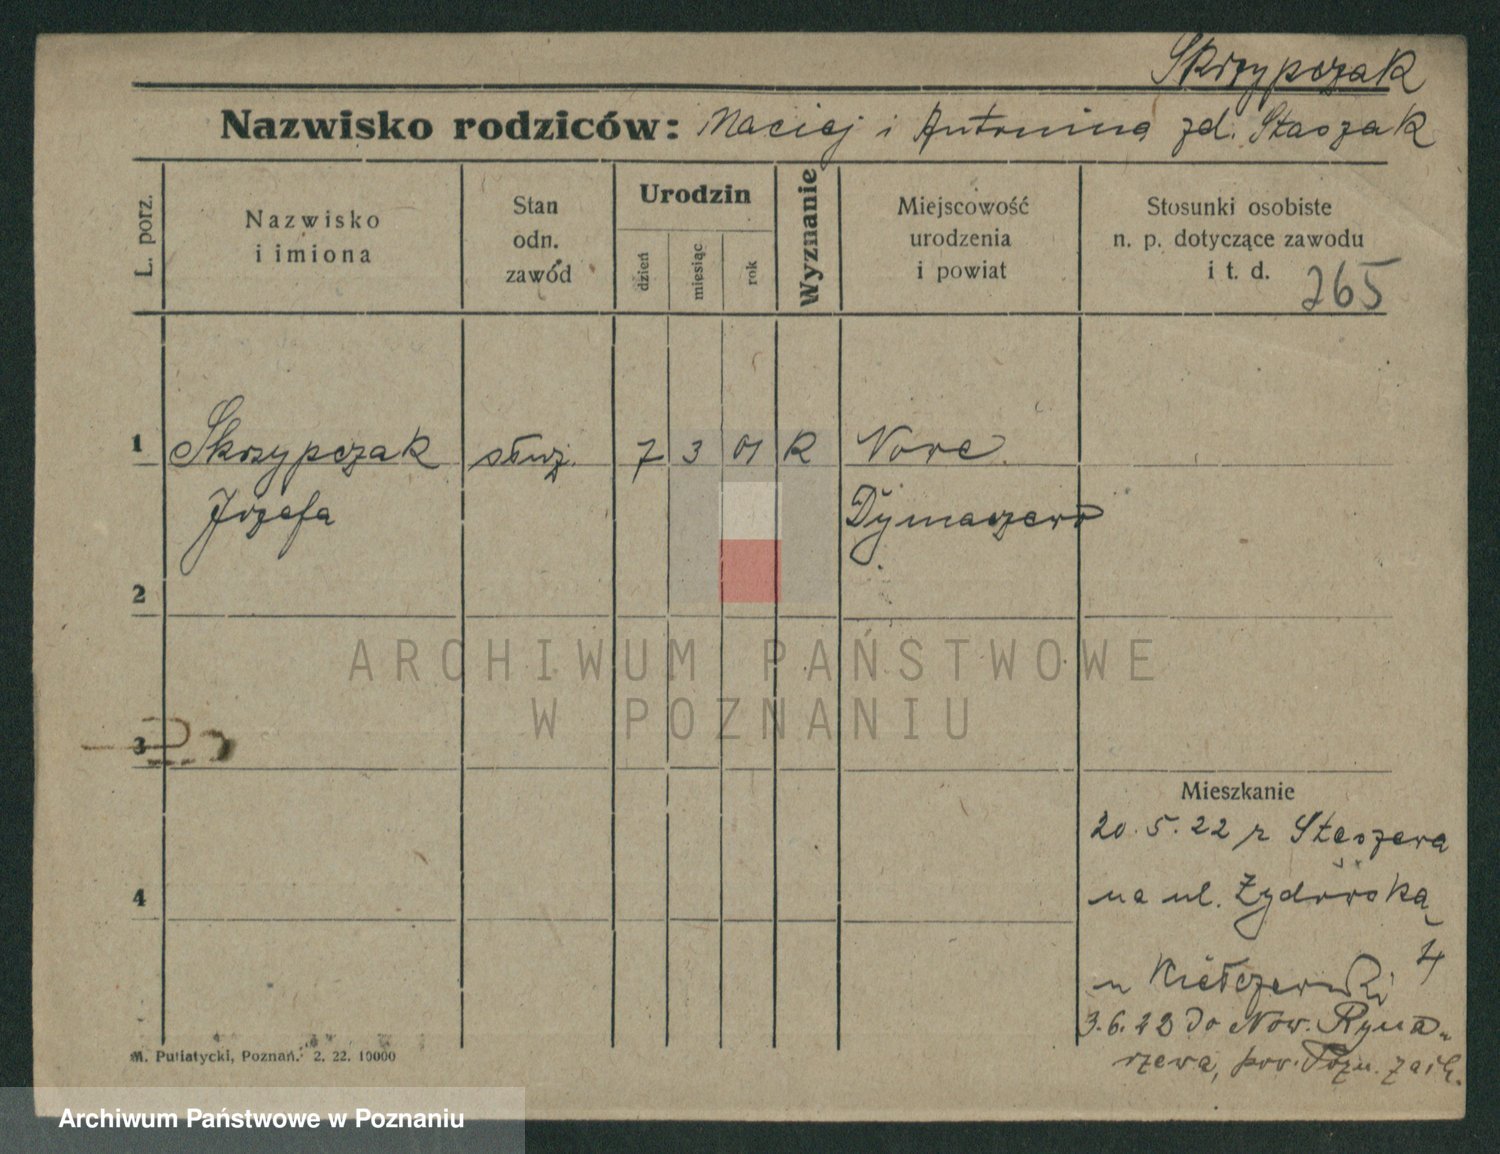 Skrzypczak
Nazwisko rodziców: Maciej i Antonina zd. Staszak
L. porz.
Nazwisko
i imiona
Stan
odn.
zawód
Urodzin
dzień
miesiąc
rok
Wyznanie
Miejscowość
urodzenia
i powiat
Stosunki osobiste
n. p. dotyczące zawodu
i t. d.
265
1 Skrzypczak służ. 7 3 01 R Nowe
Józefa Dymaczewo
2
ARCHIWUM PAŃSTWOWE
W POZNANIU
3
Mieszkanie
20. 5. 22 z Stęszewa
4
na ul. Żydowską
4
u Kiełczewski
3. 6. 23 do Now. Ryma-
rzewa, pow. Pozn. zach.
M. Putiatycki, Poznań. 2. 22. 10000
Archiwum Państwowe w Poznaniu